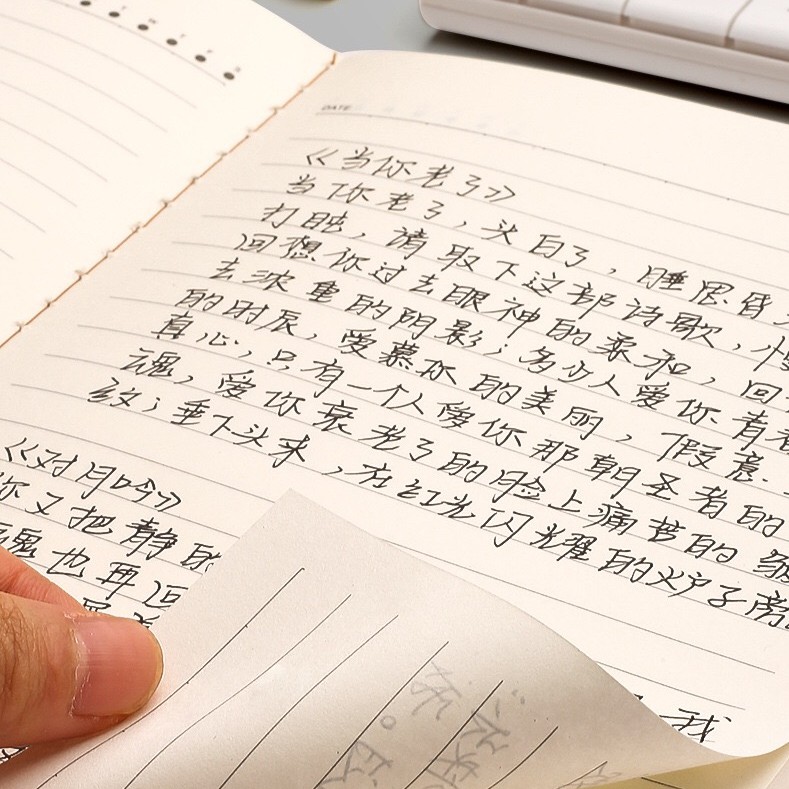 DATE
《当你老了》
当你老了，头白了，睡思昏
打盹，请取下这部诗歌，慢
回想你过去眼神的柔和，回
去浓重的阴影；多少人爱你青春
的时辰，爱慕你的美丽，假意
真心，只有一个人爱你那朝圣者的
魂，爱你衰老了的脸上痛苦的皱
纹；垂下头来，在红光闪耀的炉子旁
《对月吟》
你又把静的
魂也再回
我